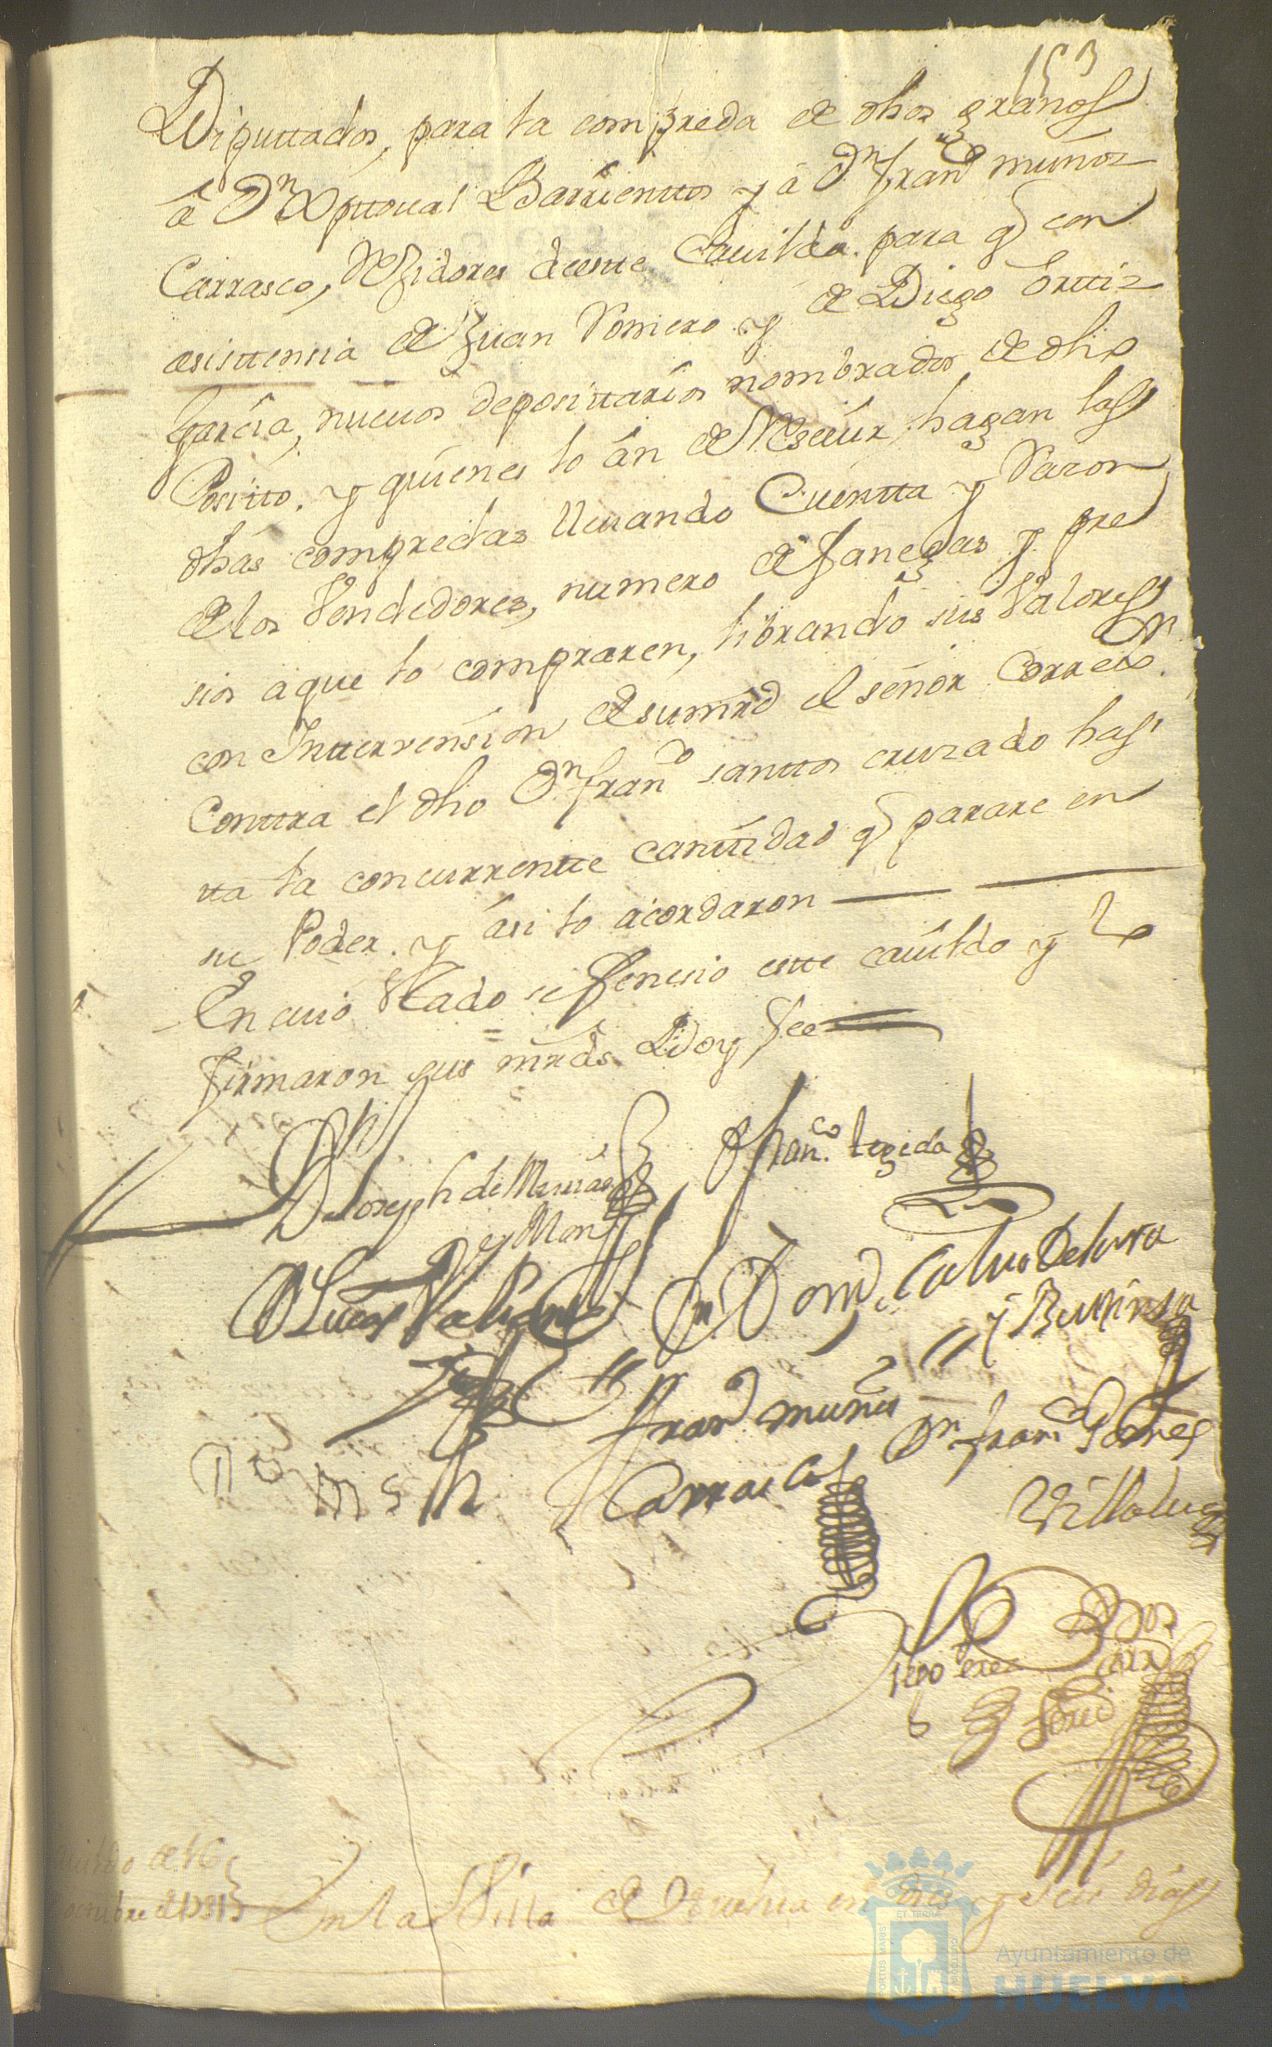 153
Diputtados, para la compreda de dhos granos
â Dn Xpttoual Barrienttos y â Dn franco muñoz
Carrasco, Rexidores deeste Cauildo. para q con
asisttensia de Juan Romero y de Diego orttiz
garcia, nueuos deposittarios nombrados de dho
Posito. y quienes lo án de Reseuir, hagan las
dhas compredas lleuando Cuentta y Razon
de los Vendedores, numero de fanegas y pre
sios aque lo compraren, librando sus Valores
con Inttervensíon de su mrd el señor Correxor
Conttra el dho Dn franco santtos cruzado has
tta la concurrentte canttidad q parare en
su Poder. y ási lo acordaron
En cuio estado se fenesio estte cauildo y lo
firmaron sus mrds Doy fee
Dn Joseph de
y Mon
franco. texeda
D Lucas Valiente
Dn Domo Caluo Delara
y
franco muñoz
Carrasco
Dn franco
Villalua
Diego Perez
cauildo de 16
octubre de 1731
En la Villa de Huelua en dies y seis dias
Ayuntamiento de
HUELVA